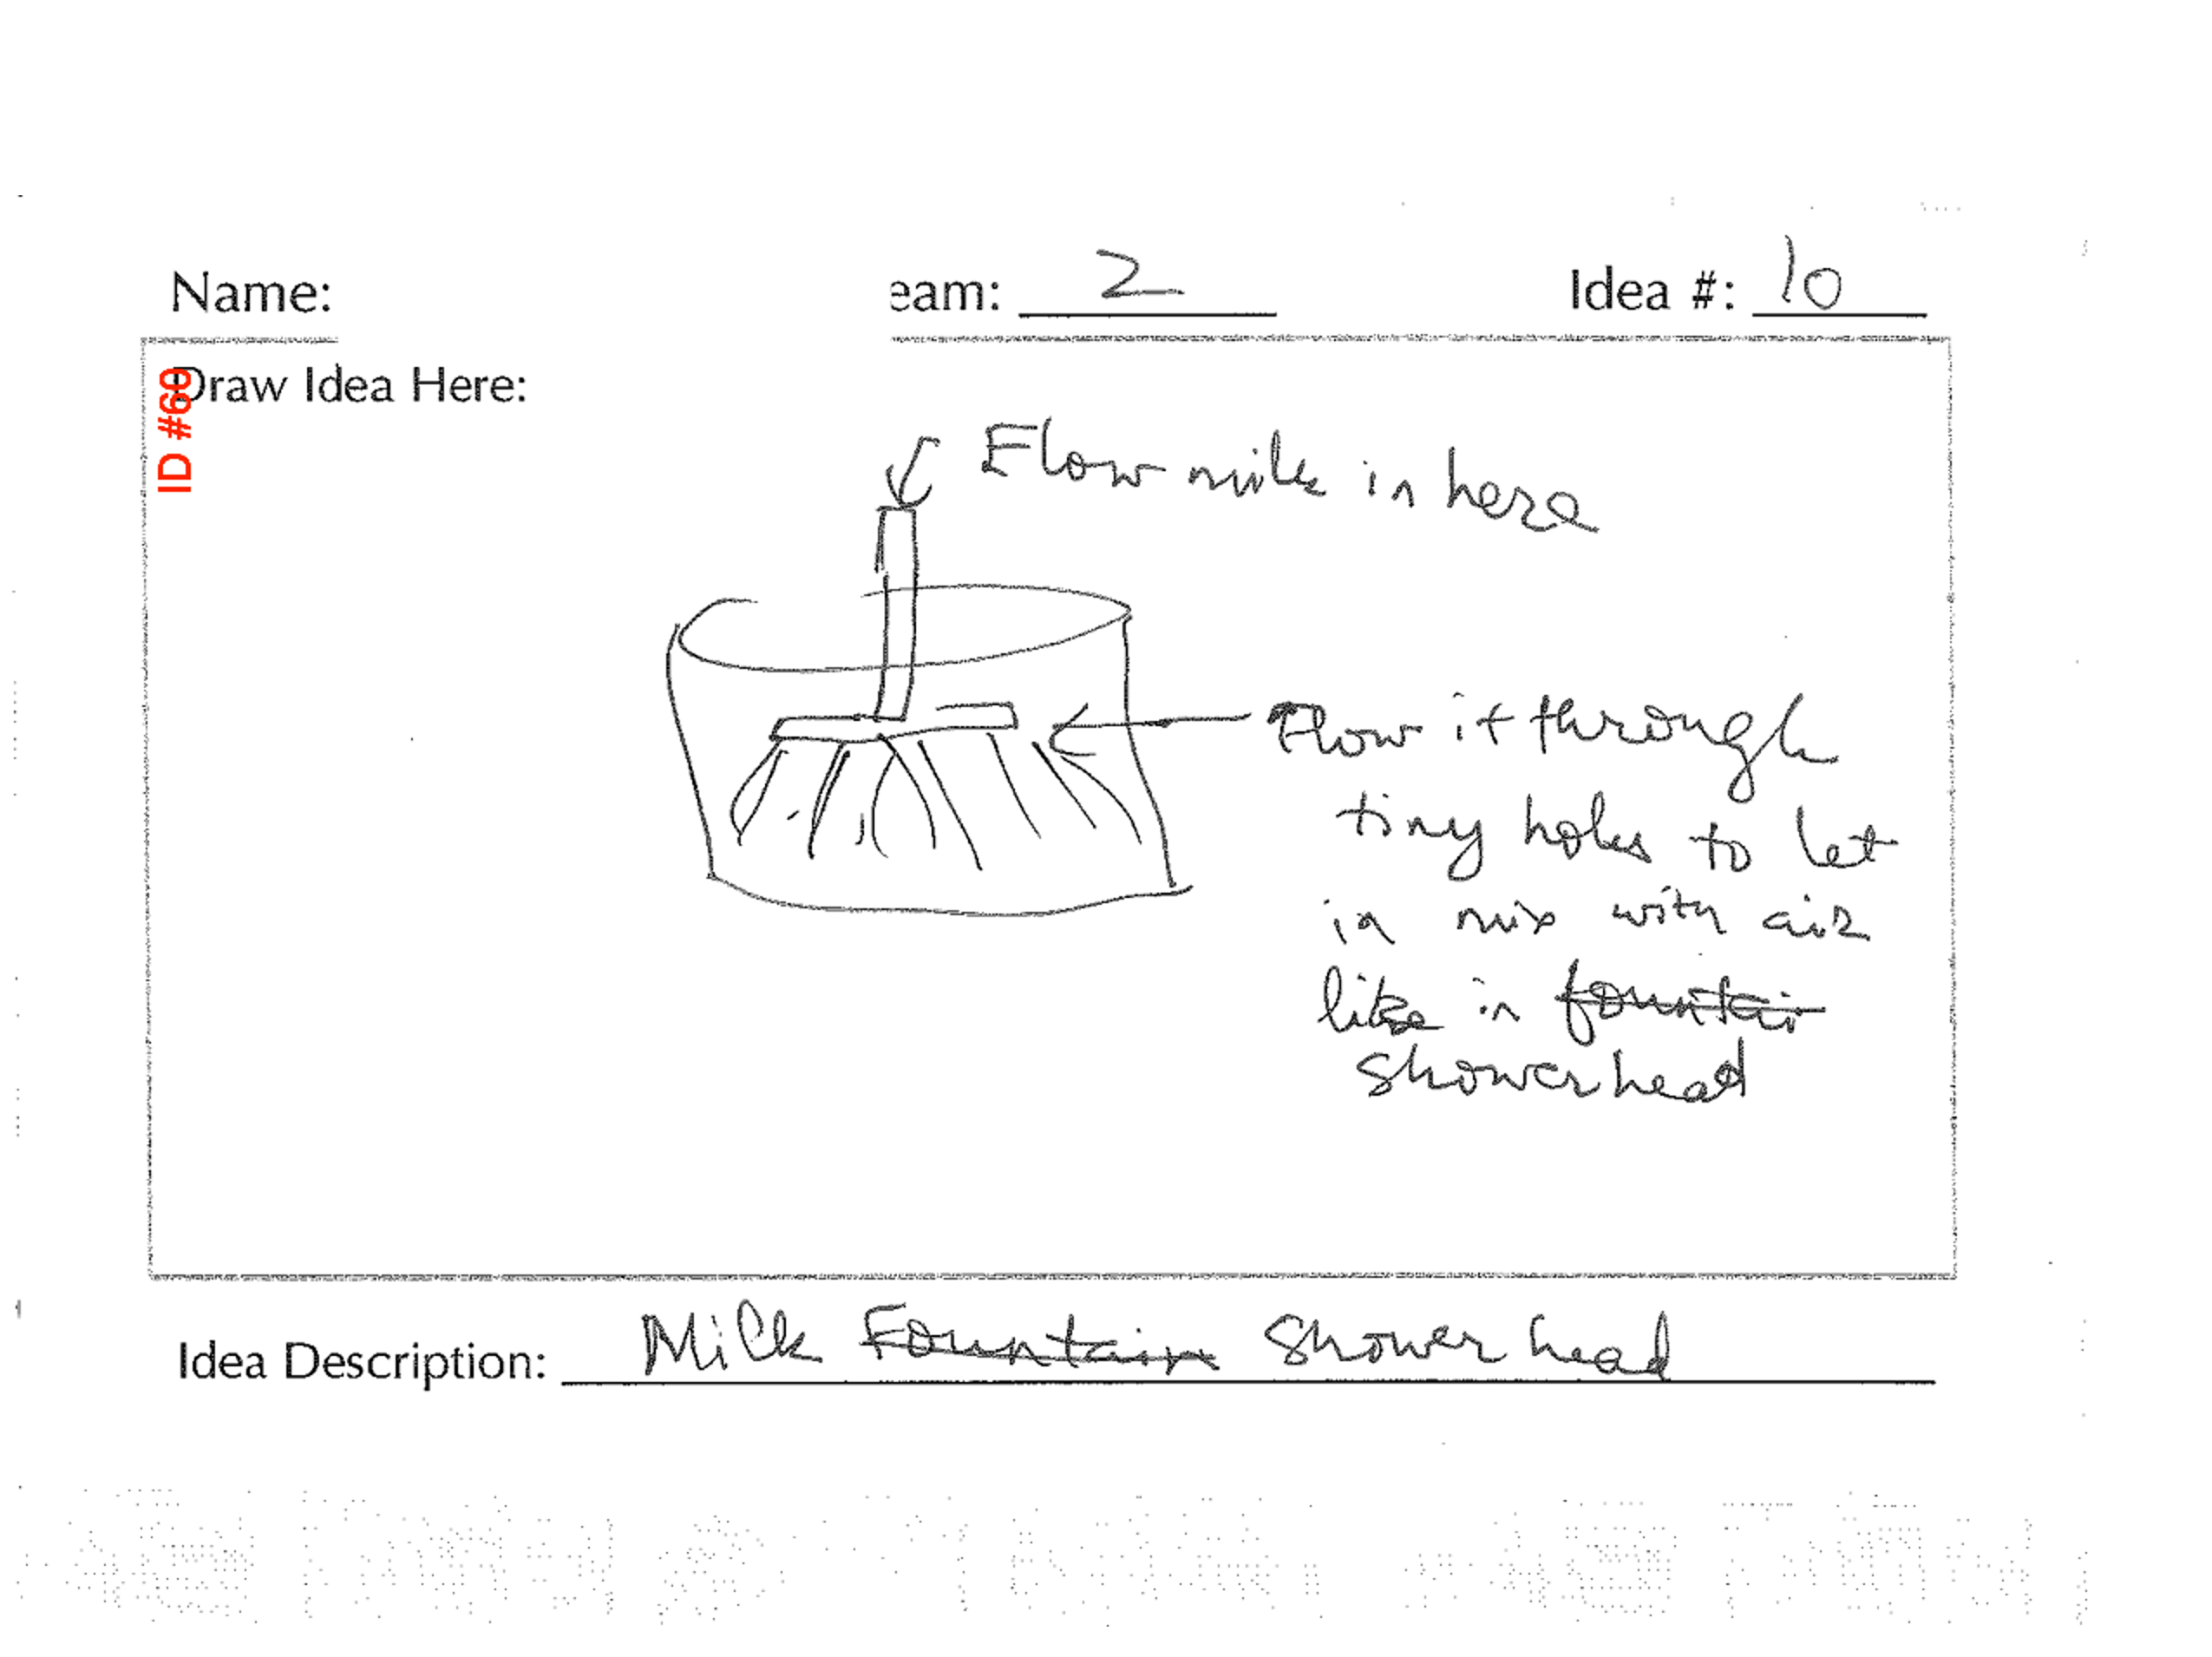 Name: eam: 2 Idea #: 10
Draw Idea Here:
ID #60
Flow milk in here
Flow it through
tiny holes to let
in mix with air
like in fountain
showerhead
Idea Description: Milk Fountain Shower head